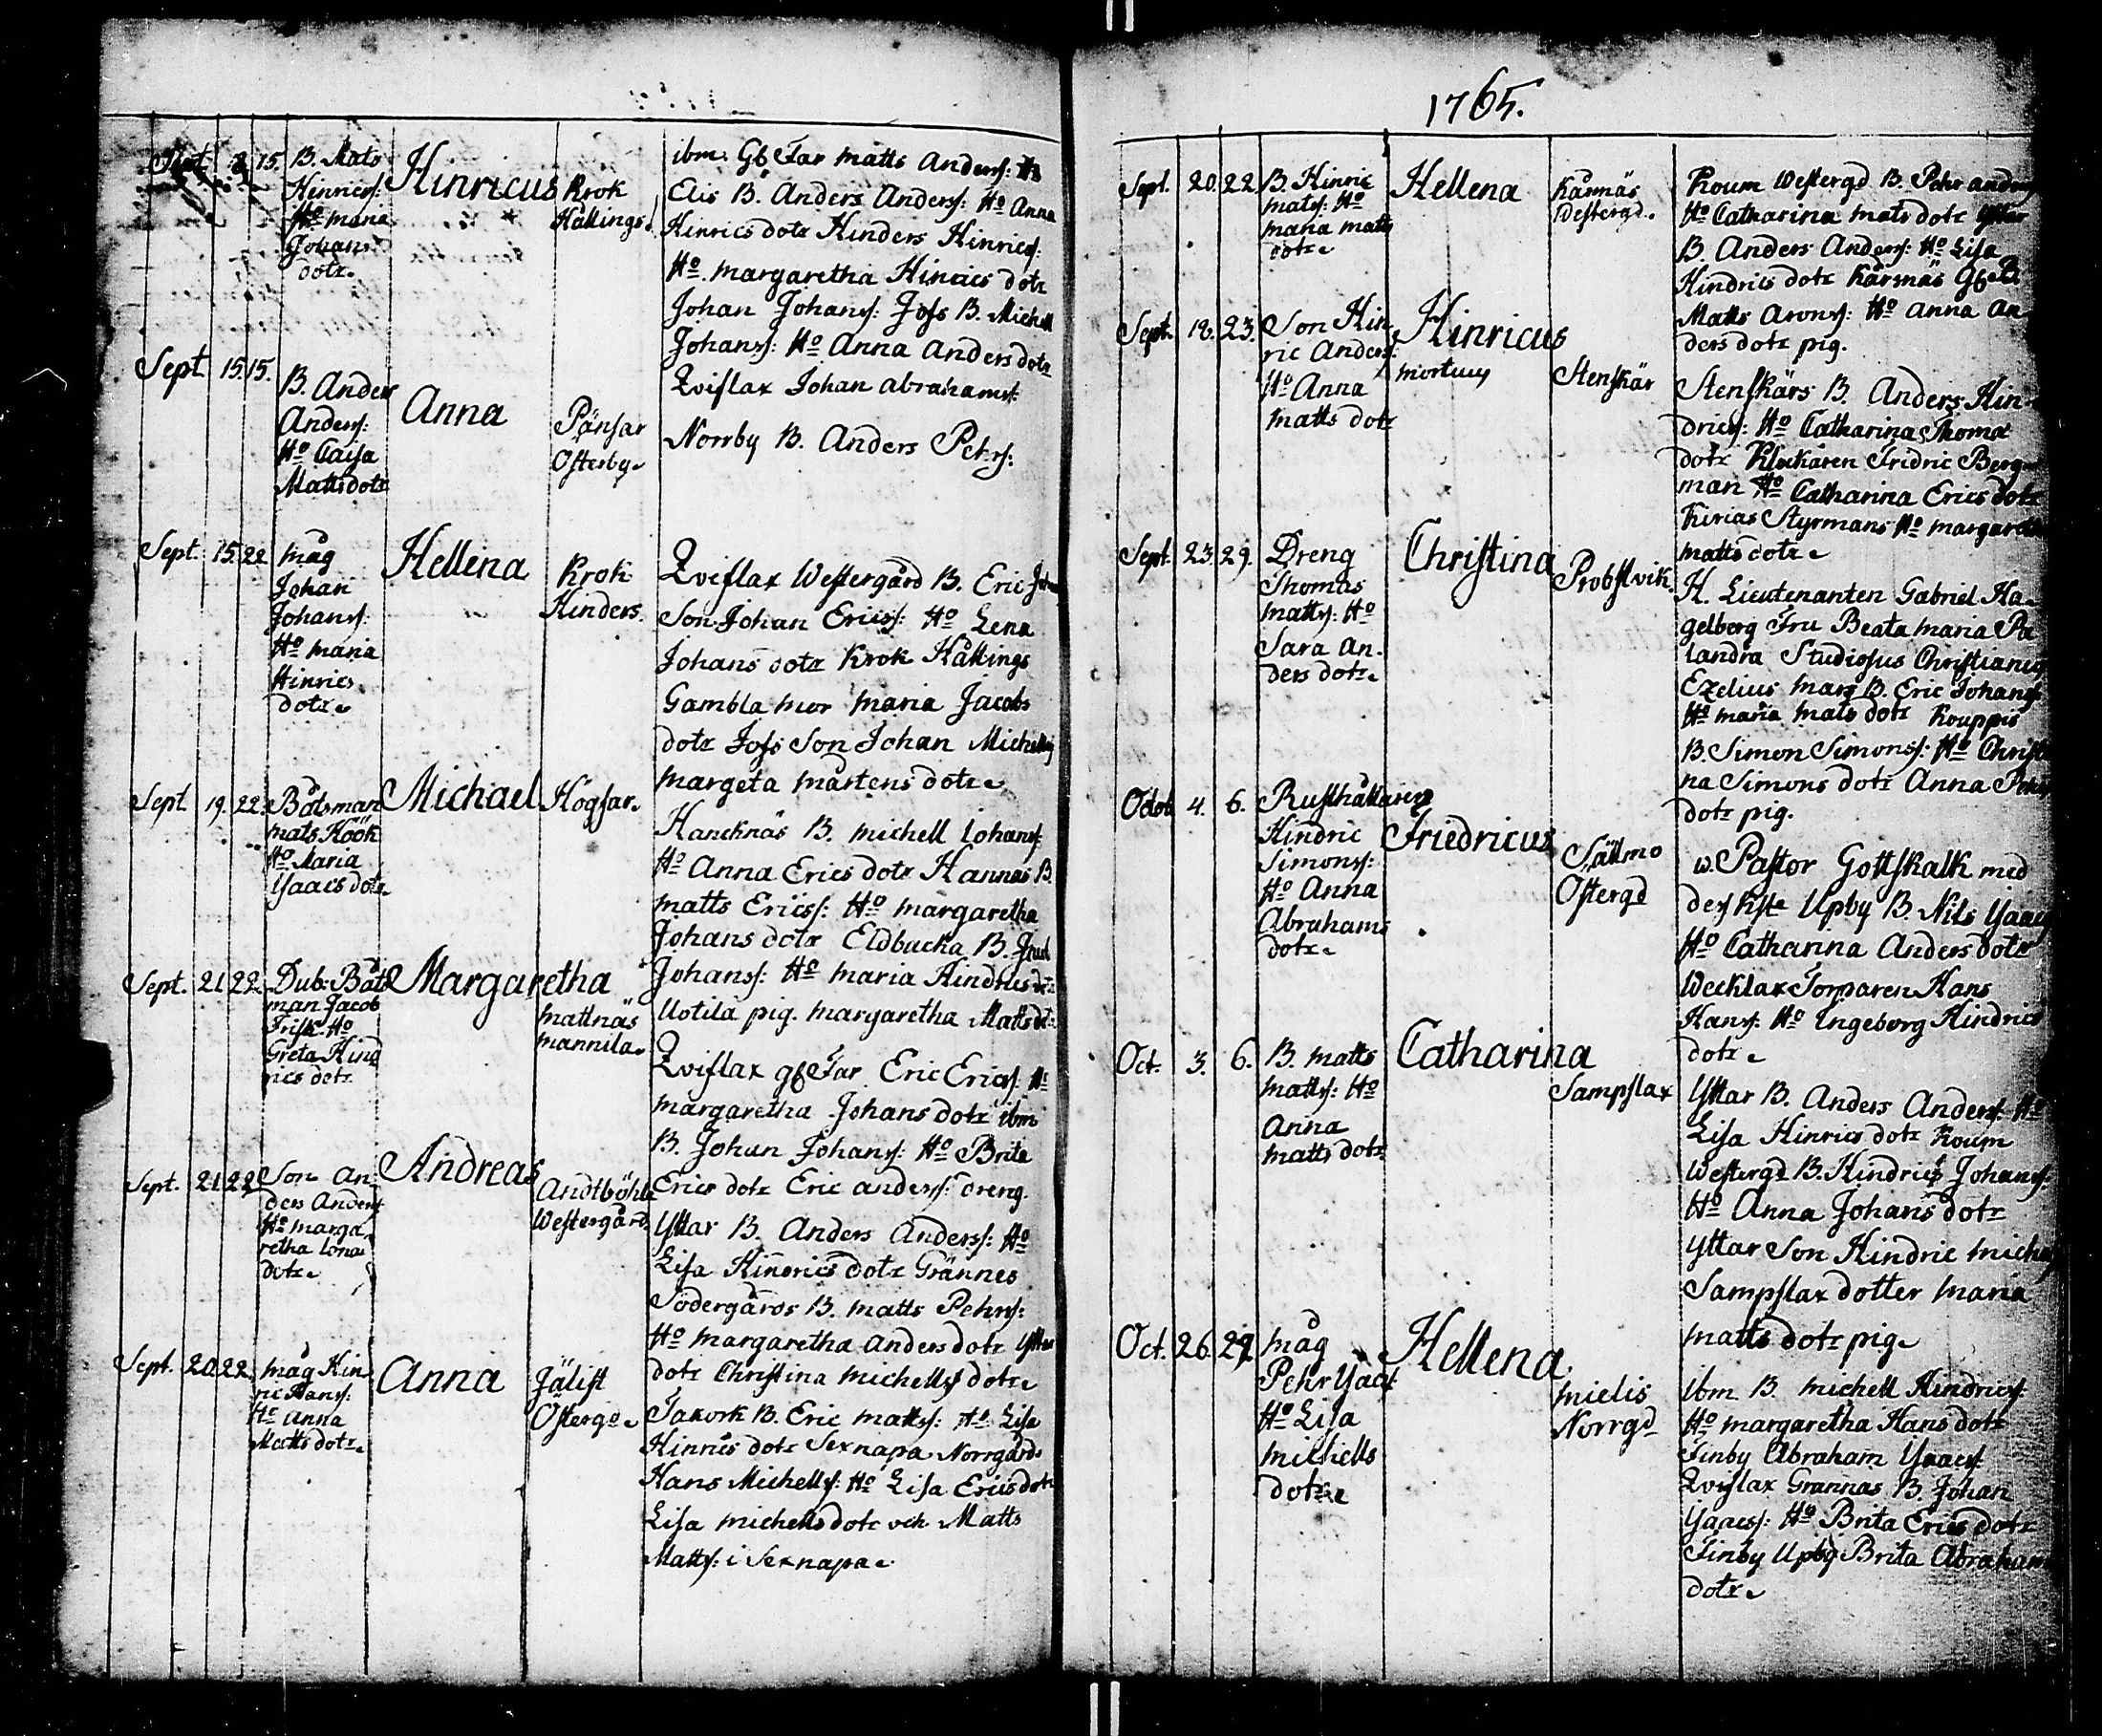 Sept. 8. 15. B. Mats
Hinrics:
Ho maria
Johans
dotr.
Hinricus
Krok
Hållings.
ibm: Gb Far Matts Anderss: Ho
Elis B. Anders Anderss: Ho Anna
Hinrics dotr Hinders Hinrics:
Ho margaretha Hinrics dotr
Johan Johanss: Joss B. Michell
Johanss: Ho Anna Anders dotr
Qvislax Johan Abrahamss:
Sept 15. 15.
B. Anders
Anderss:
Ho Caisa
Matts dotr
Anna
Pänsar
Österby.
Norrby B. Anders Pehrs:
Sept. 15. 22
måg
Johan
Johanss:
Ho maria
Hinrics
dotr.
Hellena
Krok
Hinders.
Qvislax Westergård B. Eric
Son Johan Ericss: Ho Lena
Johans dotr Krok Hållings
Gambla mor maria Jacobs
dotr Joss Son Johan Michells:
Margeta mårtens dotr.
Sept 19. 22.
Båtsman
mats Höök
Ho Maria
Ysaacs dotr.
Michael
Högsar.
Hancknäs B. michell Johanss:
Ho Anna Erics dotr Hannas B.
matts Ericss: Ho margaretha
Johans dotr Eldbacka B.
Johanss: Ho maria Hindrics dotr
Uotila pig. margaretha Matts dotr
Sept. 21. 22.
Dub: Båts
man Jacob
Frisk Ho
Greta Hind
rics dotr
Margaretha
mattnäs
mannila.
Qvislax gb Far Eric Ericss: Ho
margaretha Johans dotr ibm
B. Johan Johanss: Ho Brita
Erics dotr Eric anderss: dreng.
Sept. 21. 22
Son An:
ders Anderss
Ho marga
retha Jona
dotr.
Andreas
Andtböhle
Westergård
Yttar B. Anders Anderss: Ho
Lisa Hindrics dotr Grännes
Södergårds B. matts Pehrss:
Ho margaretha Anders dotr Yttar
dotr Christina michells dotr.
Sept. 20. 22.
måg Hin
ric Hanss:
Ho Anna
Matts dotr.
Anna
Jälist
Östergd.
Takvrk B. Eric mattss: Ho Lisa
Hinrics dotr Sexnapa Norrgårds
Hans Michells: Ho Lisa Erics dotr
Lisa michells dotr och Matts
Matts: i Sexnapa.
1765.
Sept. 20. 22.
B. Hinric
matss: Ho
maria matts
dotr.
Hellena
Kärsnäs
Westergd.
Koum Westergd B. Pehr anderss
Ho Catharina mats dotr Yttar
B. Anders Anderss: Ho Lisa
Hindrics dotr Kärsnäs Gb B.
Matts Aronss: Ho Anna An
ders dotr pig.
Sept. 18. 23.
Son Hin
ric Anderss:
Ho Anna
matts dotr
Hinricus
mortuus
Stenskär
Stenskärs B. Anders Hin
dricss: Ho Catharina Thoma
dotr Klockaren Fridric Berg
man Ho Catharina Erics dotr
Kirias Styrmans Ho margaretha
matts dotr.
Sept. 23. 29.
Dreng
Thomas
matts: Ho
Sara An
ders dotr.
Christina
Probstvik.
H. Lieutenanten Gabriel Ha
gelberg Fru Beata maria Pa
landra Studiosus Christianus
Ezelius marg B. Eric Johanss
Ho maria mats dotr Kouppis
B. Simon Simonss: Ho Christi
na Simons dotr Anna Pehrs
dotr pig.
Octob 4. 6.
Rusthållaren
Hindric
Simonss:
Ho Anna
Abrahams
dotr.
Friedricus
Sällmo
Östergd
w. Pastor Gottskalk med
dess k:ste Upby B. Nils Ysaacs
Ho Catharina Anders dotr
Wecklax Torparen Hans
Hanss: Ho Ingeborg Hindrics
dotr.
Oct. 3. 6.
B. matts
matts: Ho
Anna
matts dotr
Catharina
Sampslax
Yttar B. Anders Anderss: Ho
Lisa Hinrics dotr Koum
Westergd B. Hindrics Johanss:
Ho Anna Johans dotr
Yttar Son Hindric michels
Sampslax dotter maria
matts dotr pig.
Oct. 26. 29.
måg
Pehr Ysacs
Ho Lisa
michells
dotr.
Hellena
mielis
Norrgd
ibm. B. michell Hindricss:
Ho margaretha Hans dotr
Finby Abraham Ysaacss
Qvislax Grannas B Johan
Ysaacss: Ho Brita Erics dotr
Finby Upby Brita Abrahams
dotr.